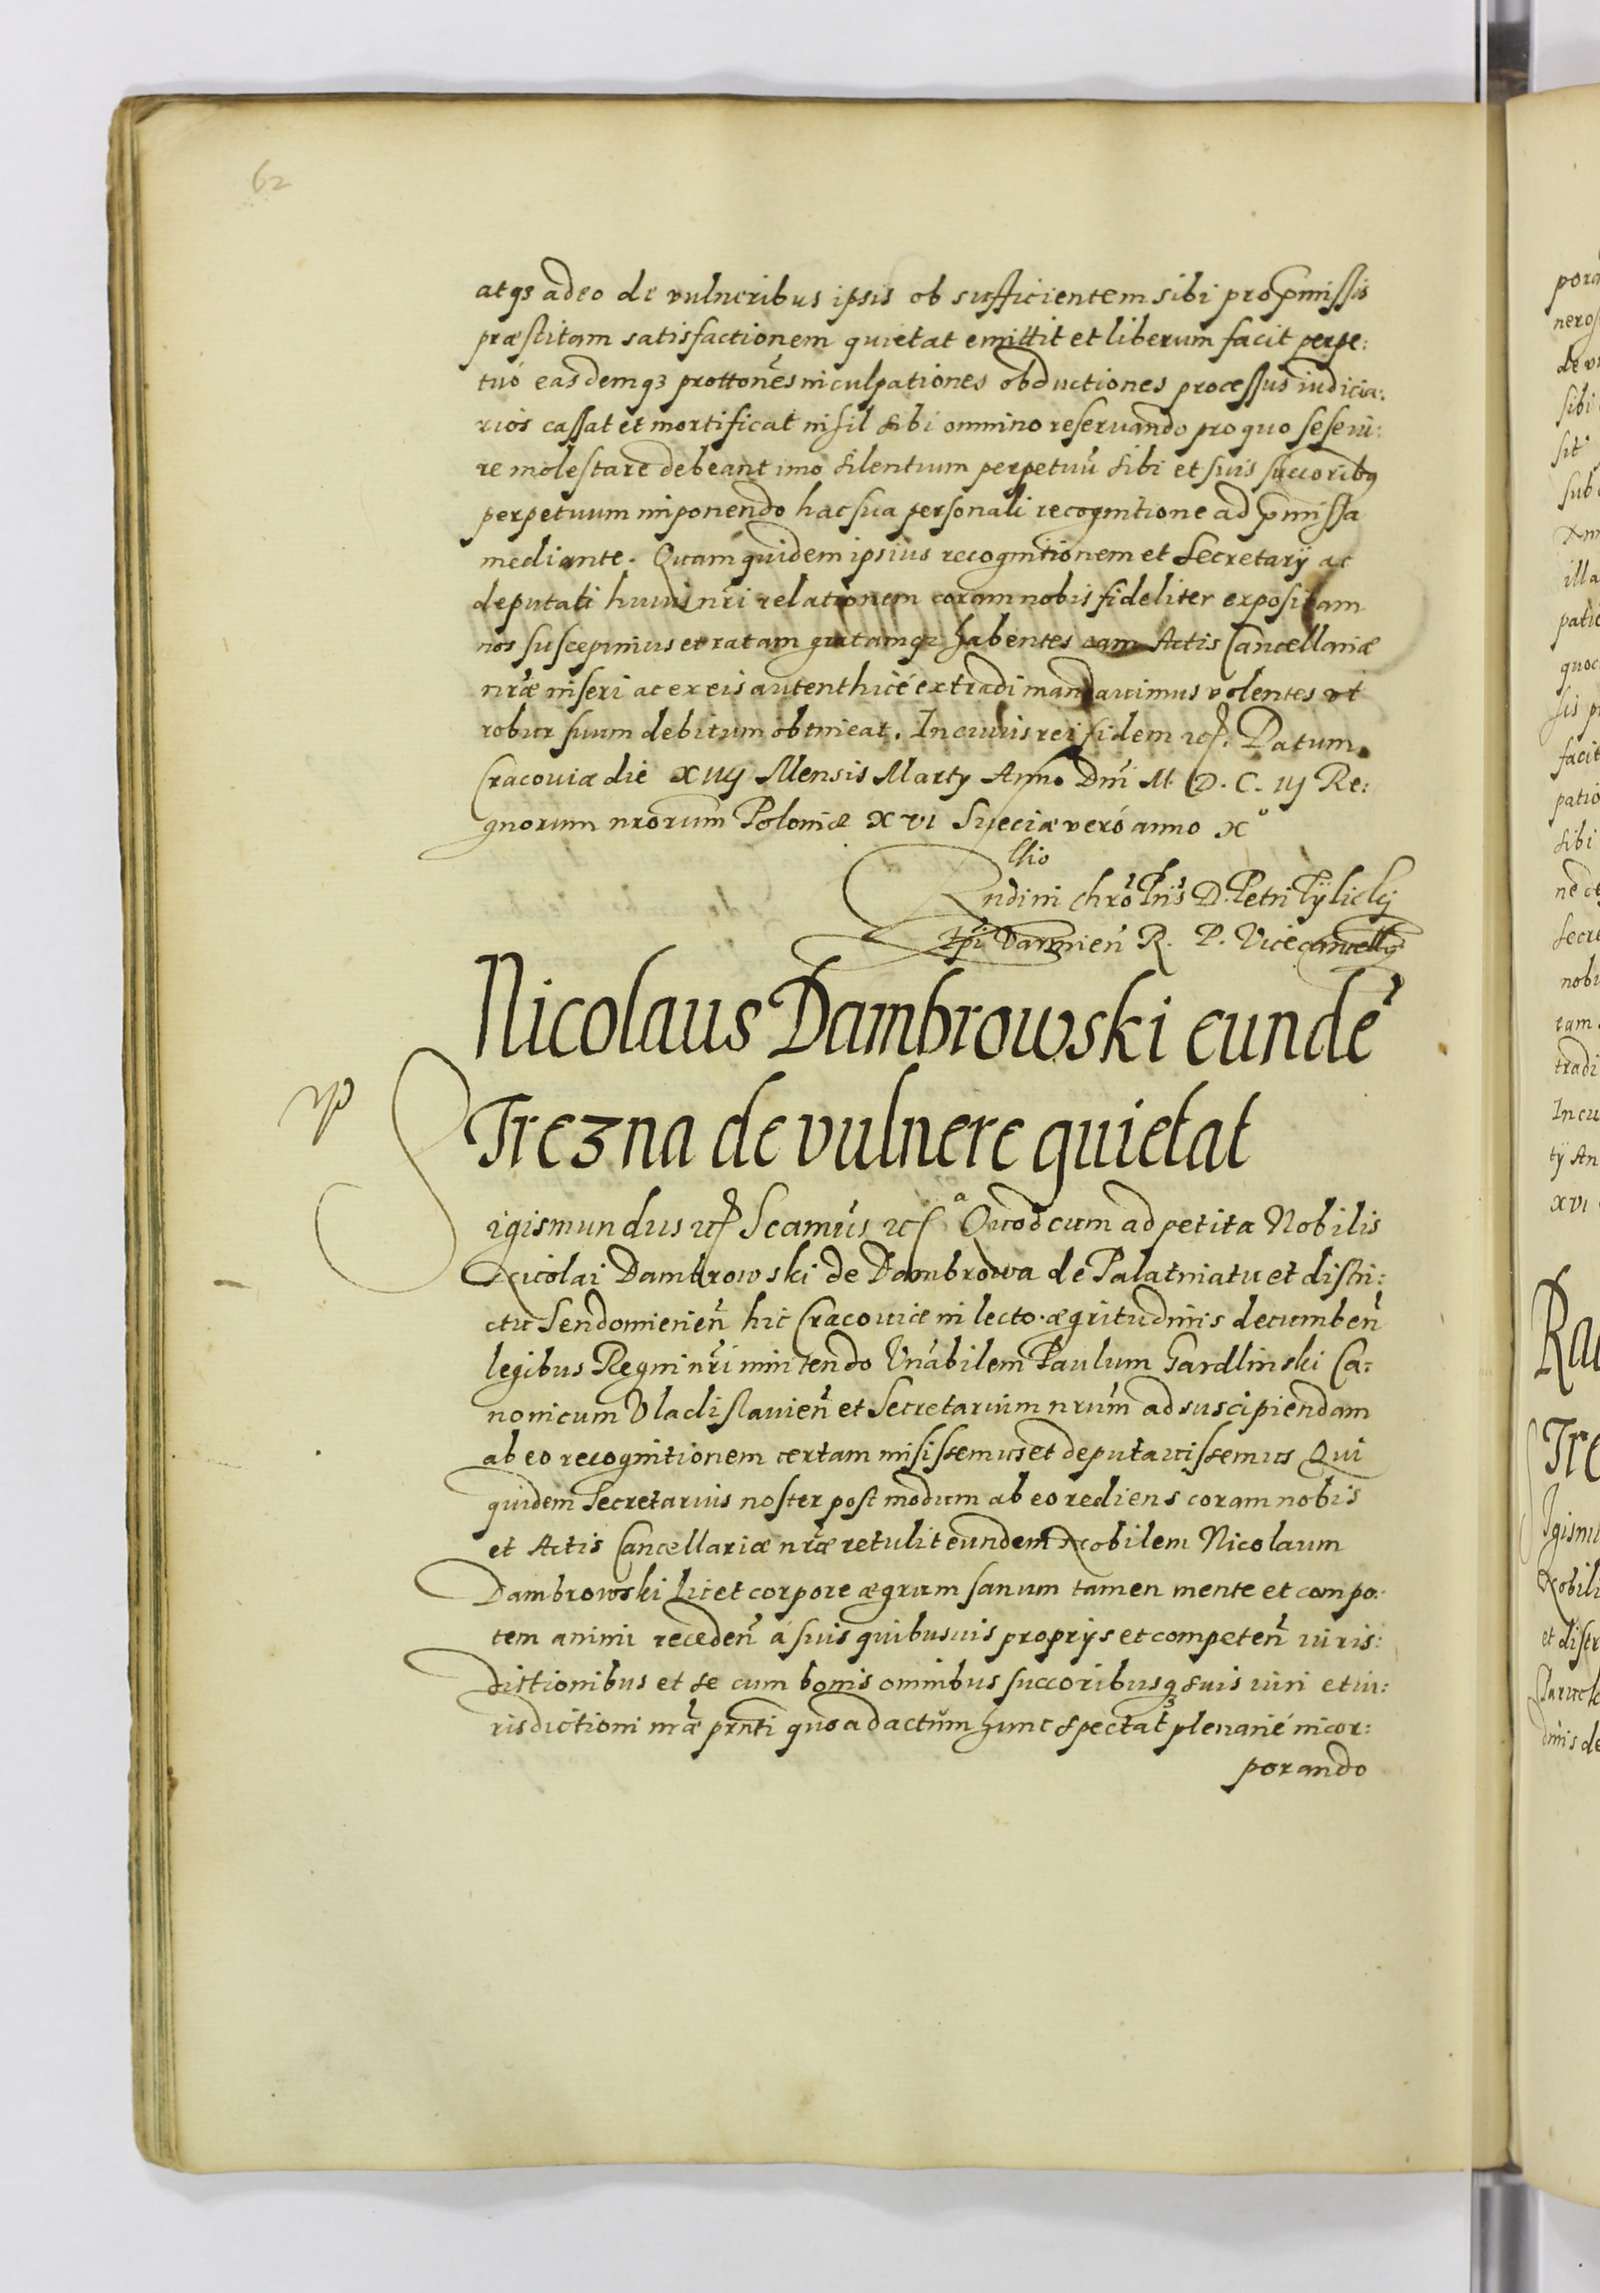 62
atq3 adeo de vulneribus ipsis ob sufficientem sibi pro pmissis
præstitam satisfactionem quietat emittit et liberum facit perpe:
tuó easdemq3 prottones inculpationes obductiones processus iudicia:
rios cassat et mortificat nihil sibi omnino reseruando pro quo sese iu:
re molestare debeant imo silentium perpetuū sibi et suis succoribq
perpetuum imponendo hac sua personali recognitione ad pmissa
mediante. Quam quidem ipsius recognitionem et Secretarÿ ac
deputati huius nři relationem coram nobis fideliter expositam
nos suscepimus et ratam gratamq3 habentes eam Actis Cancellariæ
nřæ inseri ac ex eis autenthicé extradi mandauimus volentes vt
robur suum debitum obtineat. In cuius rei fidem Datum
Cracouiæ die XIIIJ Mensis Martÿ Anno Dnī M. D. C. IIJ Re:
gnorum nrorum Poloniæ XVI Sueciæ veró anno X°
Rndini chrō Pris D. Petri Tÿlickj
Epi Varmien R. P. Vicecancellÿ
Nicolaus Dambrowski eundē
Trezna de vulnere quietat
Sigismundus Scamus Quod cum ad petita Nobilis
Nicolai Dambrowski de Dambrowa de Palatinatu et distri:
ctu Sendomirien hic Cracouiæ in lecto ægritudinis decumben
legibus Regni nři innitendo Vnabilem Paulum Gardlinski Ca:
nonicum Vladislauien et Secretarium nrum ad suscipiendam
ab eo recognitionem certam misissemus et deputauissemus Qui
quidem Secretarius noster post modum ab eo rediens coram nobis
et Actis Cancellariæ nřæ retulit eundem Nobilem Nicolaum
Dambrowski licet corpore ægrum sanum tamen mente et compo:
tem animi receden á suis quibusuis proprÿs et competen iuris:
dictionibus et se cum bonis omnibus succoribusq suis iuri et iu:
risdictioni nřæ prnti quo ad actum hunc spectat plenarié incor:
porando